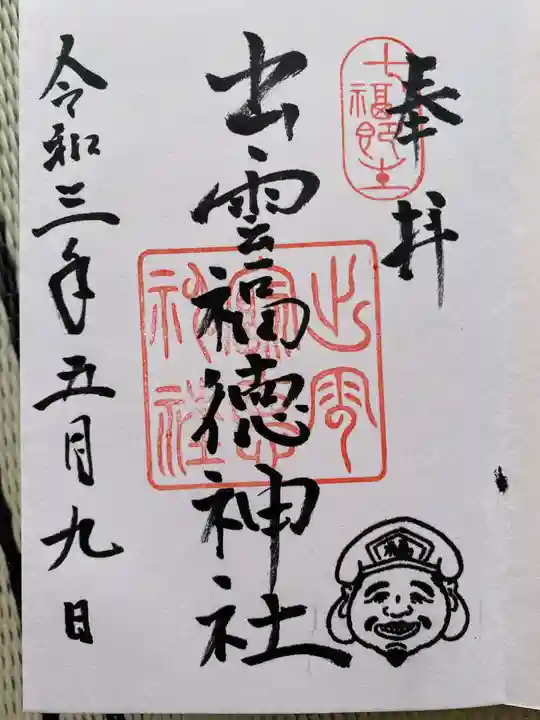 奉拝
出雲福徳神社
出雲
福徳
神社
令和三年五月九日
福